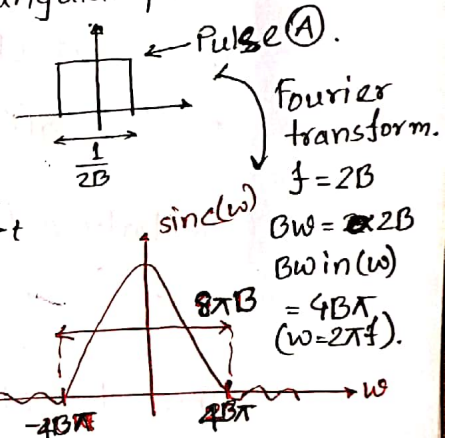 Pulse Ⓐ.
1
2B
Fourier
transform.
f = 2B
BW = 2B
BW in (w)
= 4Bπ
(w=2πf).
t
sinc(w)
8πB
w
-4Bπ
4Bπ